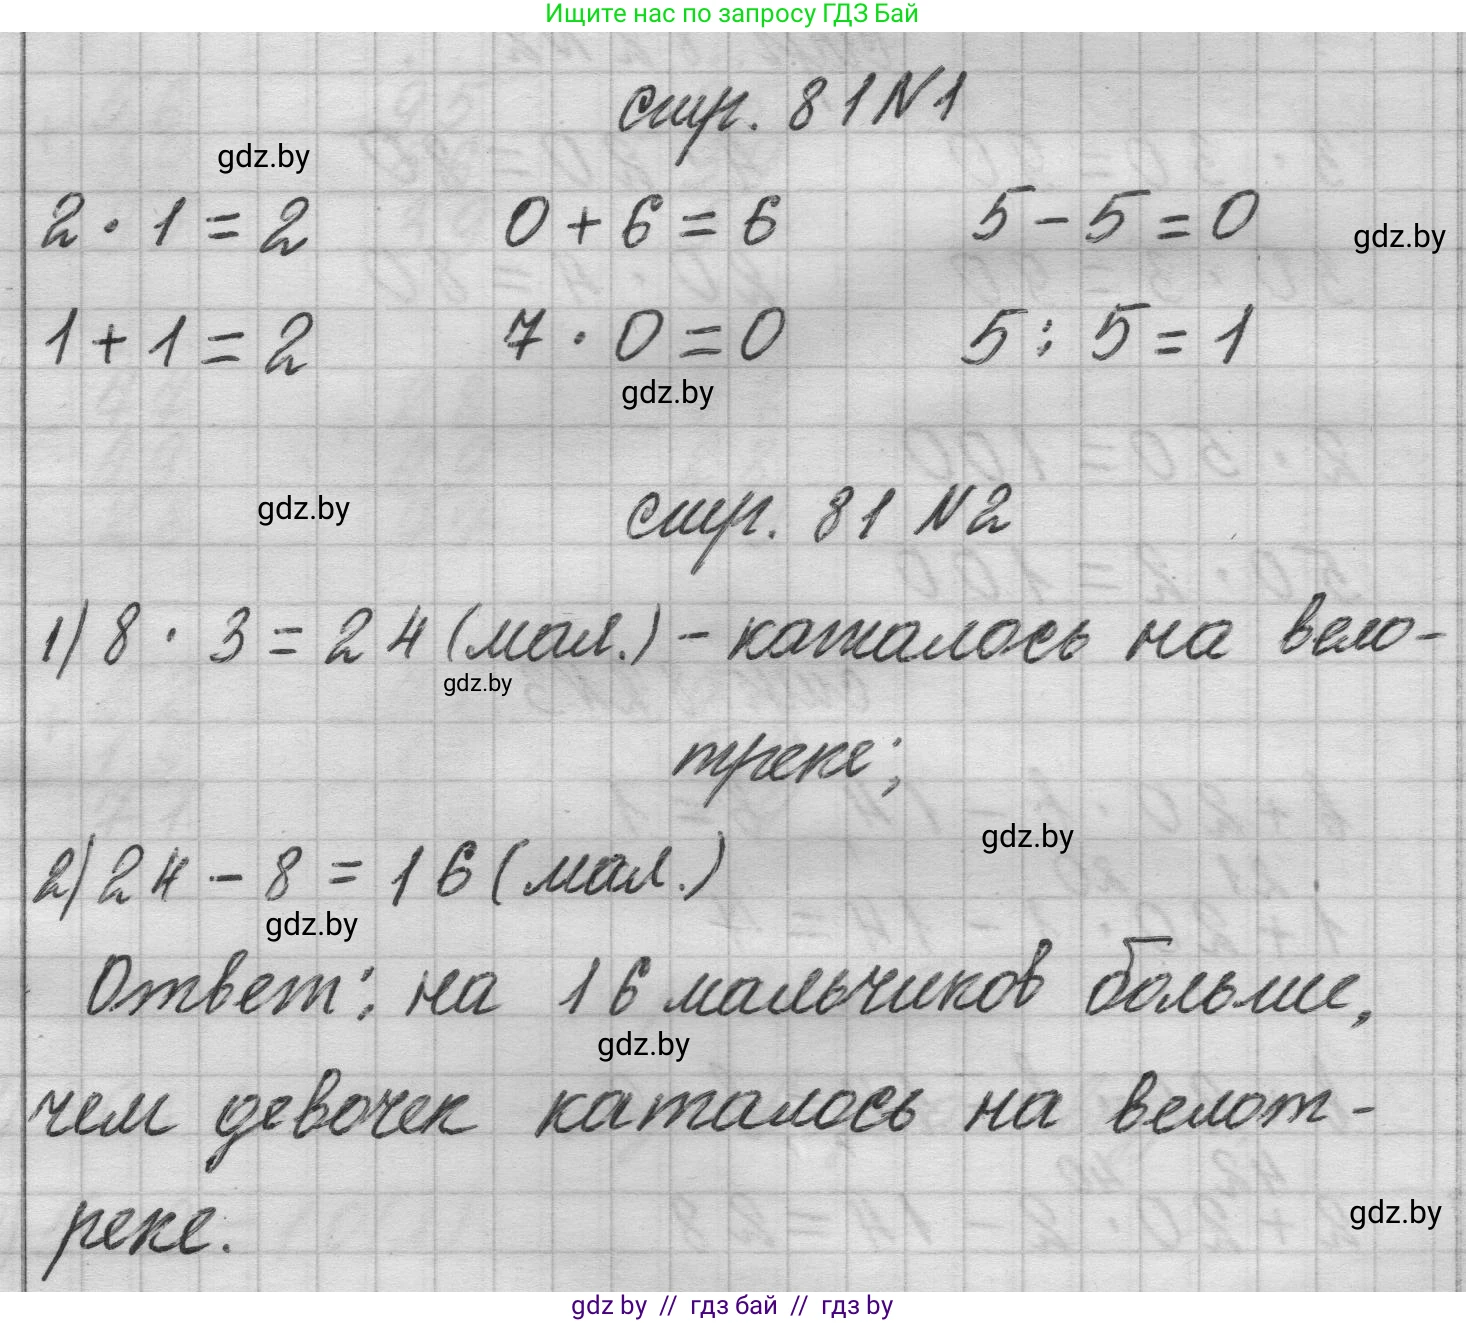 Ищите нас по запросу ГДЗ Бай
стр. 81 N1
gdz.by
2 · 1 = 2 0 + 6 = 6 5 - 5 = 0
gdz.by
1 + 1 = 2 7 · 0 = 0 5 : 5 = 1
gdz.by
gdz.by
стр. 81 N2
1) 8 · 3 = 24 (мал.) - каталось на вело-
gdz.by
треке;
gdz.by
2) 24 - 8 = 16 (мал.)
gdz.by
Ответ: на 16 мальчиков больше,
gdz.by
чем девочек каталось на велот-
реке.
gdz.by
gdz by // гдз бай // гдз by